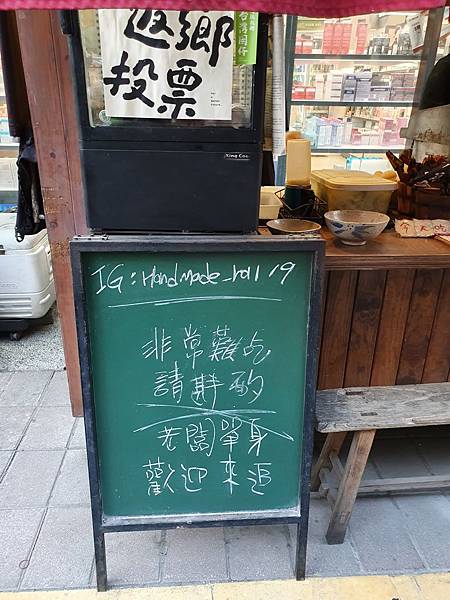 返鄉
投票
台灣囡仔
King Coo
IG:Handmade_roll19
非常難吃
請斟酌
老闆單身
歡迎來追